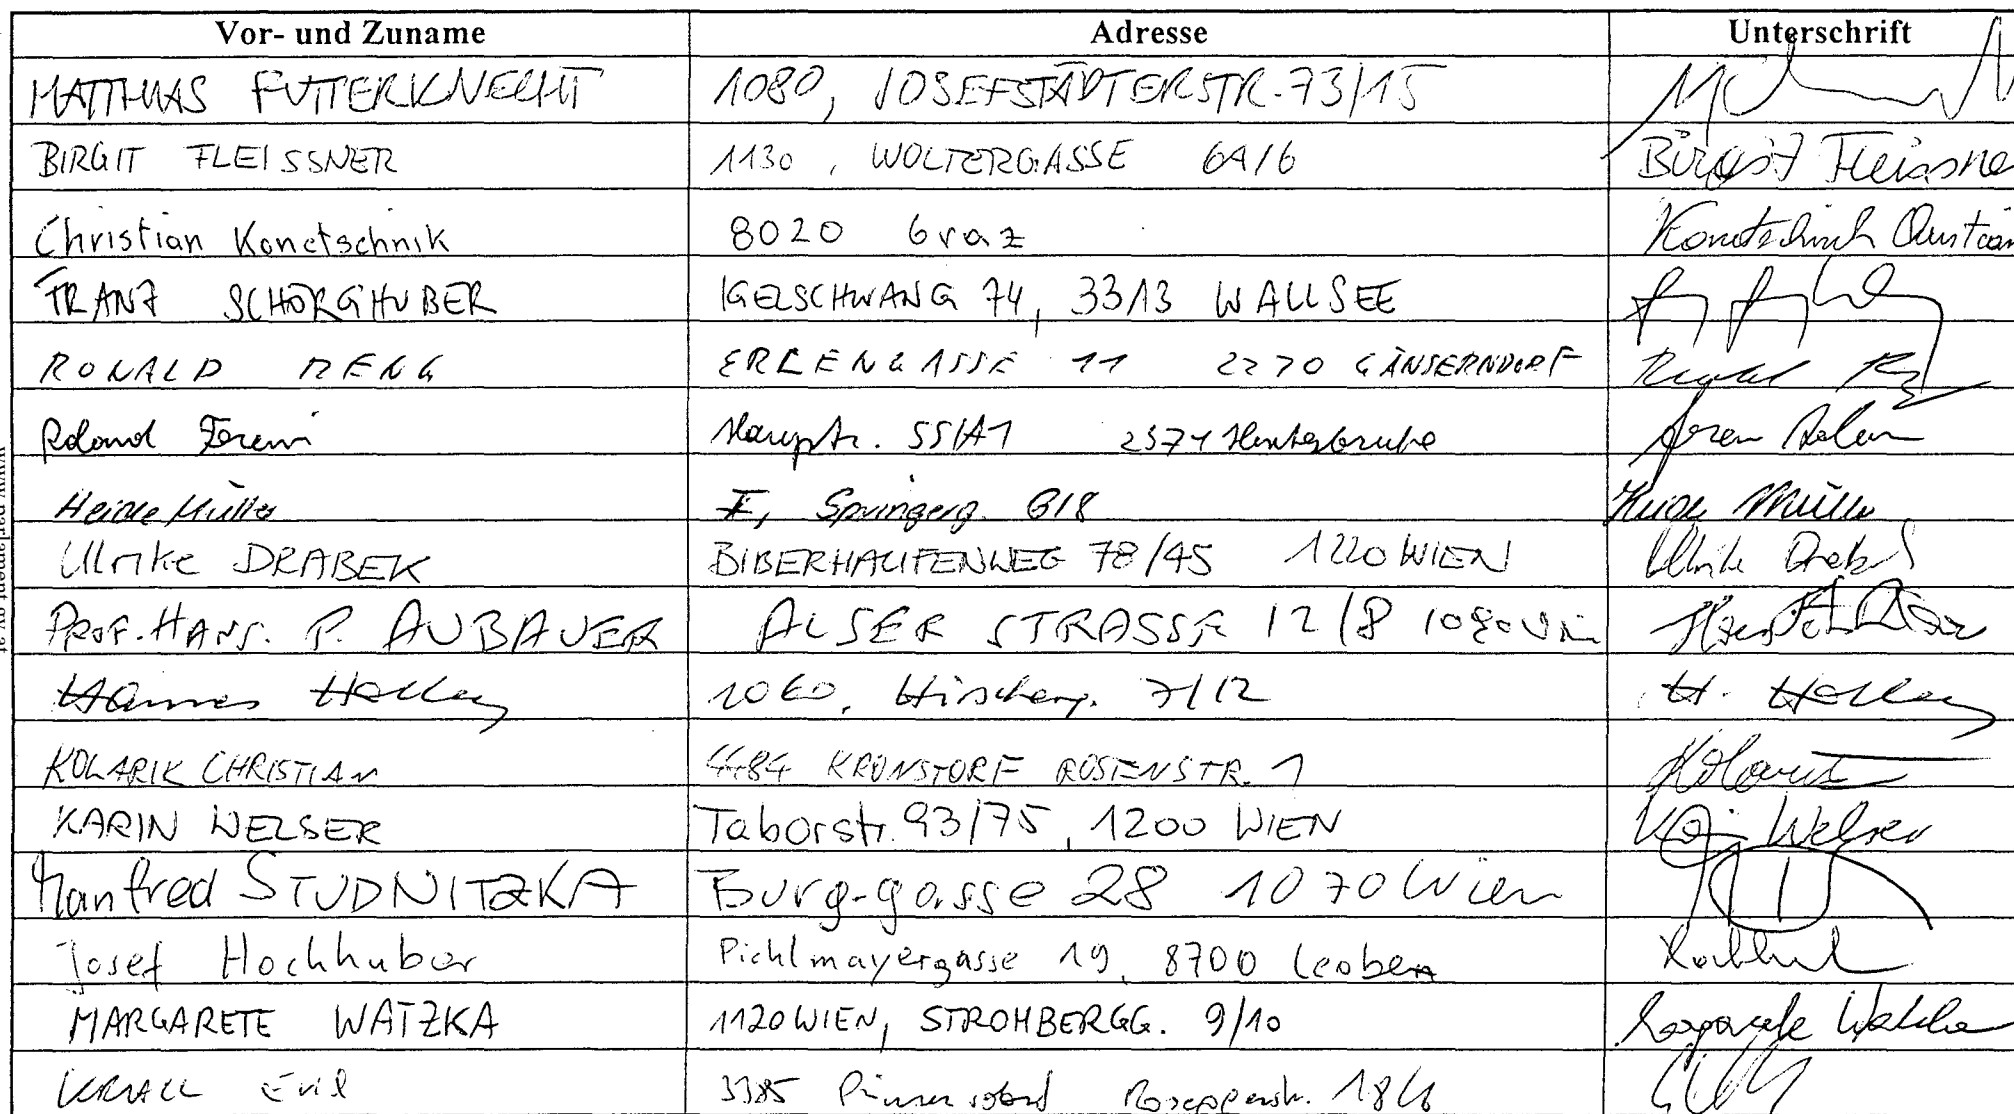 Vor- und Zuname Adresse Unterschrift
MATTHIAS FUTTERKNECHT 1080, JOSEFSTÄDTERSTR. 73/15
BIRGIT FLEISSNER 1130, WOLTERGASSE 6A/6 Birgit Fleissner
Christian Konetschnik 8020 Graz Konetschnik Christian
FRANZ SCHÖRGHUBER IGELSCHWANG 74, 3313 WALLSEE
RONALD RENG ERLENGASSE 11 2270 GÄNSERNDORF
Roland 2371 Hinterbrühl
Heide Müller Springerg. 6/8 Heide Müller
Ulrike DRABEK BIBERHAUFENWEG 78/45 1220 WIEN Ulrike Drabek
PROF. HANS. P. AUBAUER ALSER STRASSE 12/8 1080 Wien
1060, 7/12 H.
KOLARIK CHRISTIAN 4484 KRONSTORF ROSENSTR. 1 Kolarik
KARIN WELSER Taborstr. 93/75, 1200 WIEN Karin Welser
Manfred STUDNITZKA Burg-gasse 28 1070 Wien
Josef Hochhuber Pichlmayergasse 19, 8700 Leoben
MARGARETE WATZKA 1120 WIEN, STROHBERGG. 9/10 Margarete Watzka
3385
www.parlament.gv.at